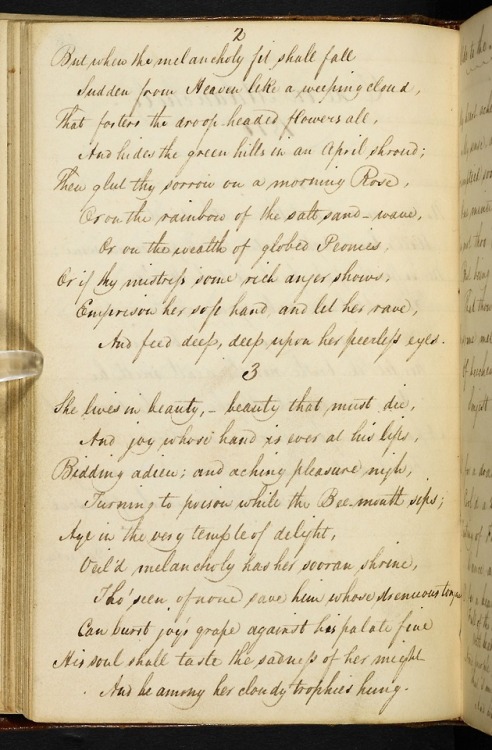 2
But when the melancholy fit shall fall
Sudden from Heaven like a weeping cloud,
That fosters the droop headed flowers all,
And hides the green hills in an April shroud;
Then glut thy sorrow on a morning Rose,
Or on the rainbow of the salt sand-wave,
Or on the wealth of globed Peonies,
Or if thy mistress some rich anger shows,
Emprison her soft hand, and let her rave,
And feed deep, deep upon her peerless eyes.
3
She lives in beauty,- beauty that must die,
And joy whose hand is ever at his lips,
Bidding adieu; and aching pleasure nigh,
Turning to poison while the Bee-mouth sips;
Aye in the very temple of delight,
Veil'd melancholy has her sovran shrine,
Tho' seen of none save him whose strenuous tongue
Can burst joy's grape against his palate fine
His soul shall taste the sadness of her might
And be among her cloudy trophies hung.